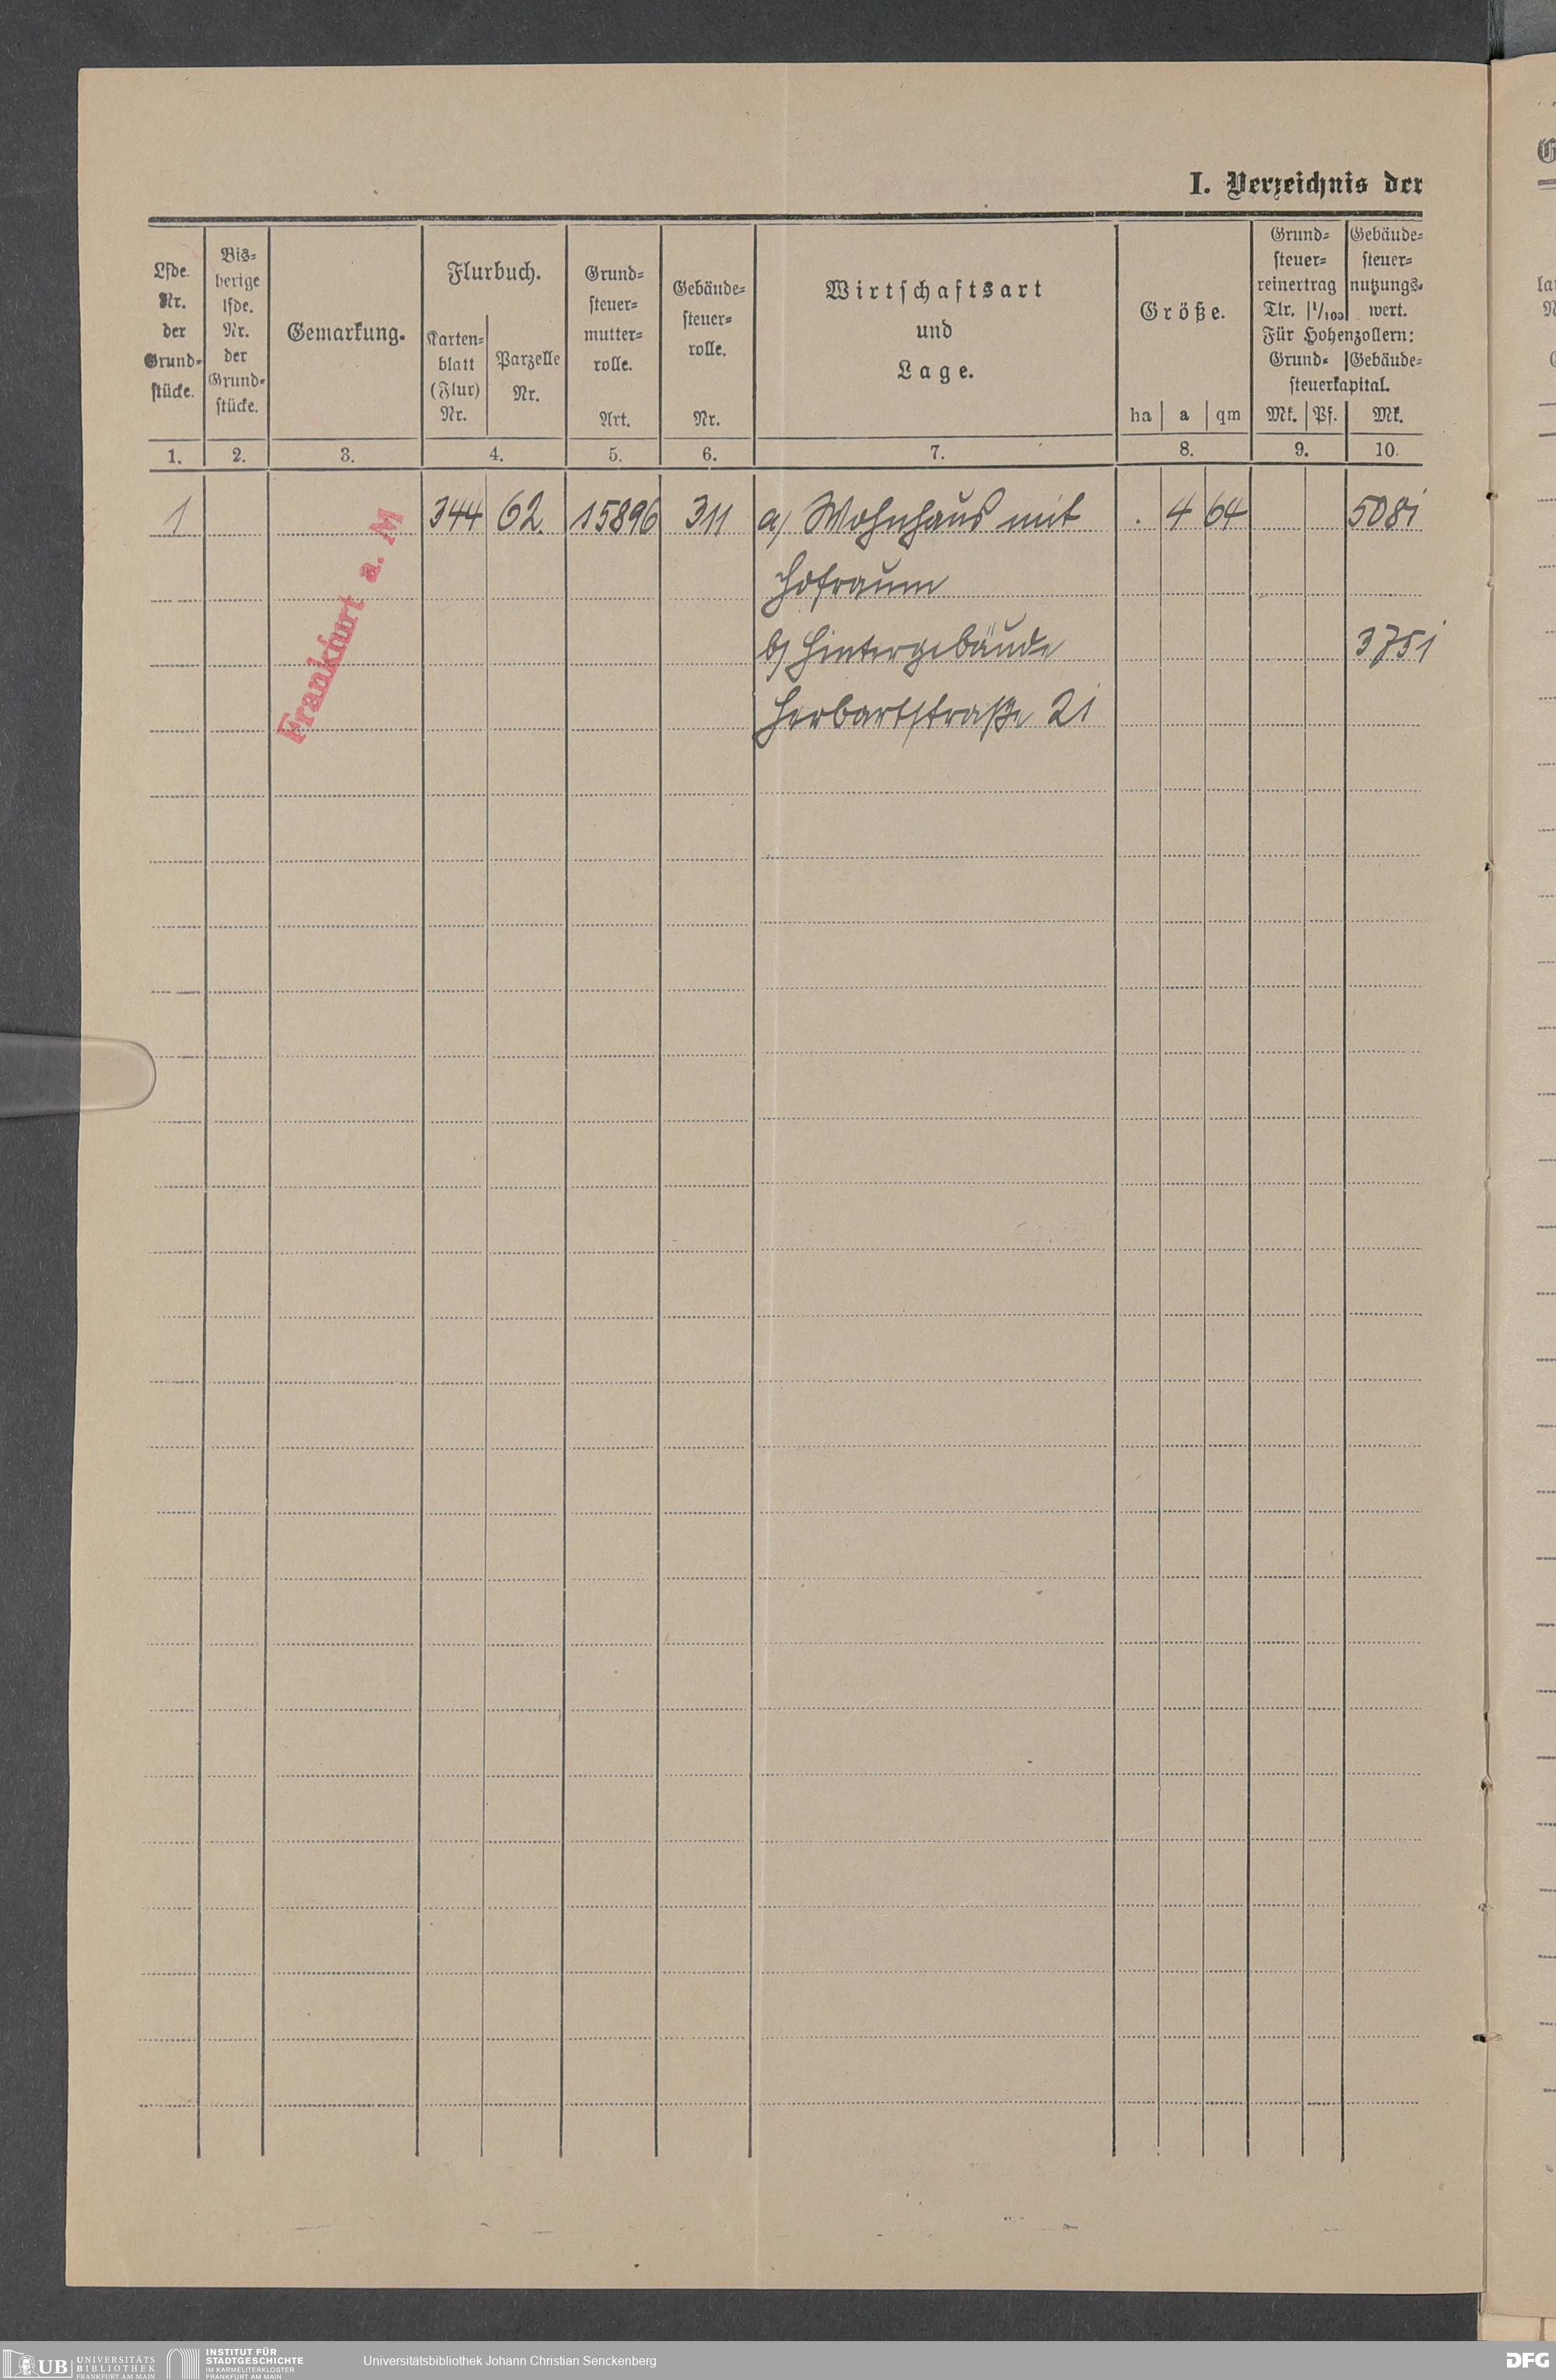 I. Verzeichnis der
Lfde.
Nr.
der
Grund-
stücke.
Bis-
herige
lfde.
Nr.
der
Grund-
stücke.
Gemarkung.
Flurbuch.
Karten-
blatt
(Flur)
Nr.
Parzelle
Nr.
Grund-
steuer-
mutter-
rolle.
Art.
Gebäude-
steuer-
rolle.
Nr.
Wirtschaftsart
und
Lage.
Größe.
ha a qm
Grund-
steuer-
reinertrag
Tlr. 1/100
Gebäude-
steuer-
nutzungs-
wert.
Für Hohenzollern:
Grund- Gebäude-
steuerkapital.
Mk. Pf. Mk.
1. 2. 3. 4. 5. 6. 7. 8. 9. 10.
1 344 62. 15896 311 a) Wohnhaus mit . 4 64 5081
Hofraum
b) Hintergebäude 3751
Herbartstraße 21
Frankfurt a. M
UB UNIVERSITÄTS
BIBLIOTHEK
FRANKFURT AM MAIN
INSTITUT FÜR
STADTGESCHICHTE
IM KARMELITERKLOSTER
FRANKFURT AM MAIN
Universitätsbibliothek Johann Christian Senckenberg
DFG